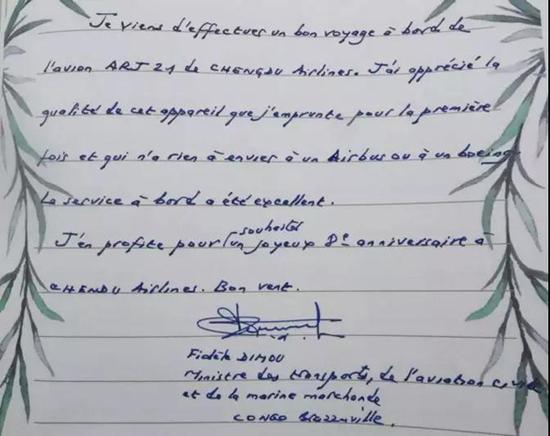 Je viens d'effectuer un bon voyage à bord de
l'avion ARJ 21 de CHENGDU Airlines. J'ai apprécié la
qualité de cet appareil que j'emprunte pour la première
fois et qui n'a rien à envier à un Airbus ou à un boeing.
Le service à bord a été excellent.
J'en profite pour souhaiter un joyeux 8e anniversaire à
CHENDU Airlines. Bon vent.
Fidèle DIMOU
Ministre des transports, de l'aviation civile
et de la marine marchande
CONGO Brazzaville.